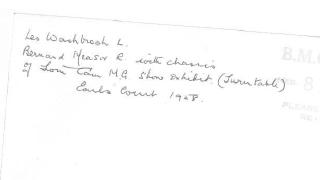 Les Washbrook L.
Bernard Measor R. with chassis
of Tom Cann M.G. Show exhibit (Turntable)
Earls Court 1948.
B.M.C
8
PLEASE
RE